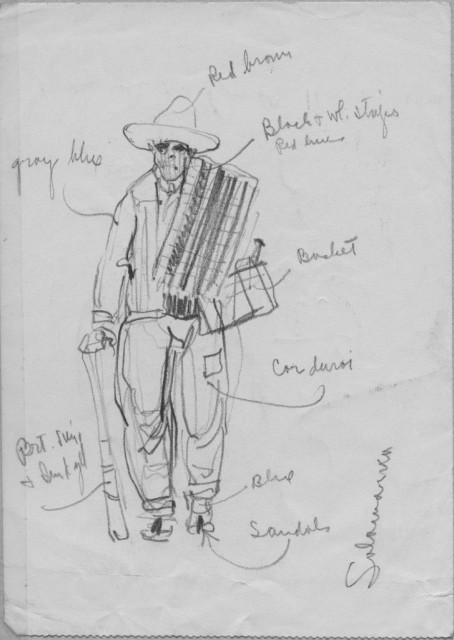 Red brown
Black + Wh. stripes
Red lines
gray blue
Basket
Corduroi
Blue
Sandals
Salamanca